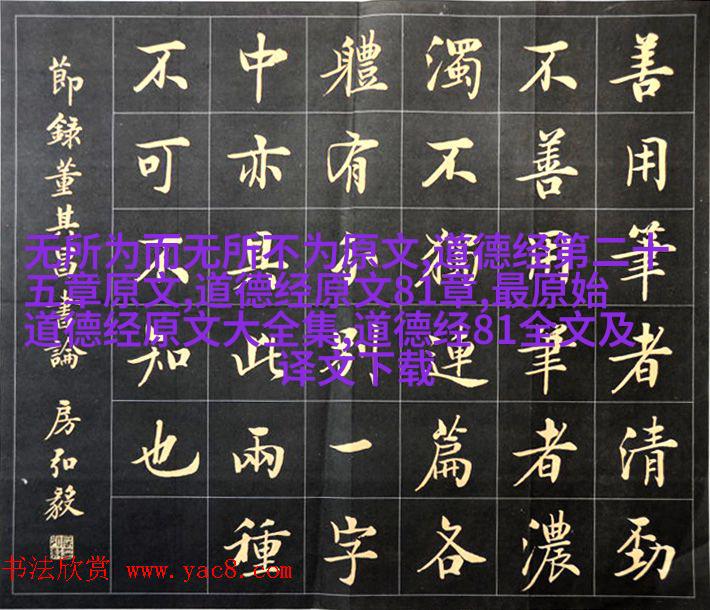 善用筆者清勁
不善用筆者濃
濁不獨連篇各
體有分別一字
中亦具此兩種
不可不知也
節録董其昌書論 房弘毅
无所为而无所不为原文,道德经第二十
五章原文,道德经原文81章,最原始
道德经原文大全集,道德经81全文及
译文下载
书法欣赏 www.yac8.com